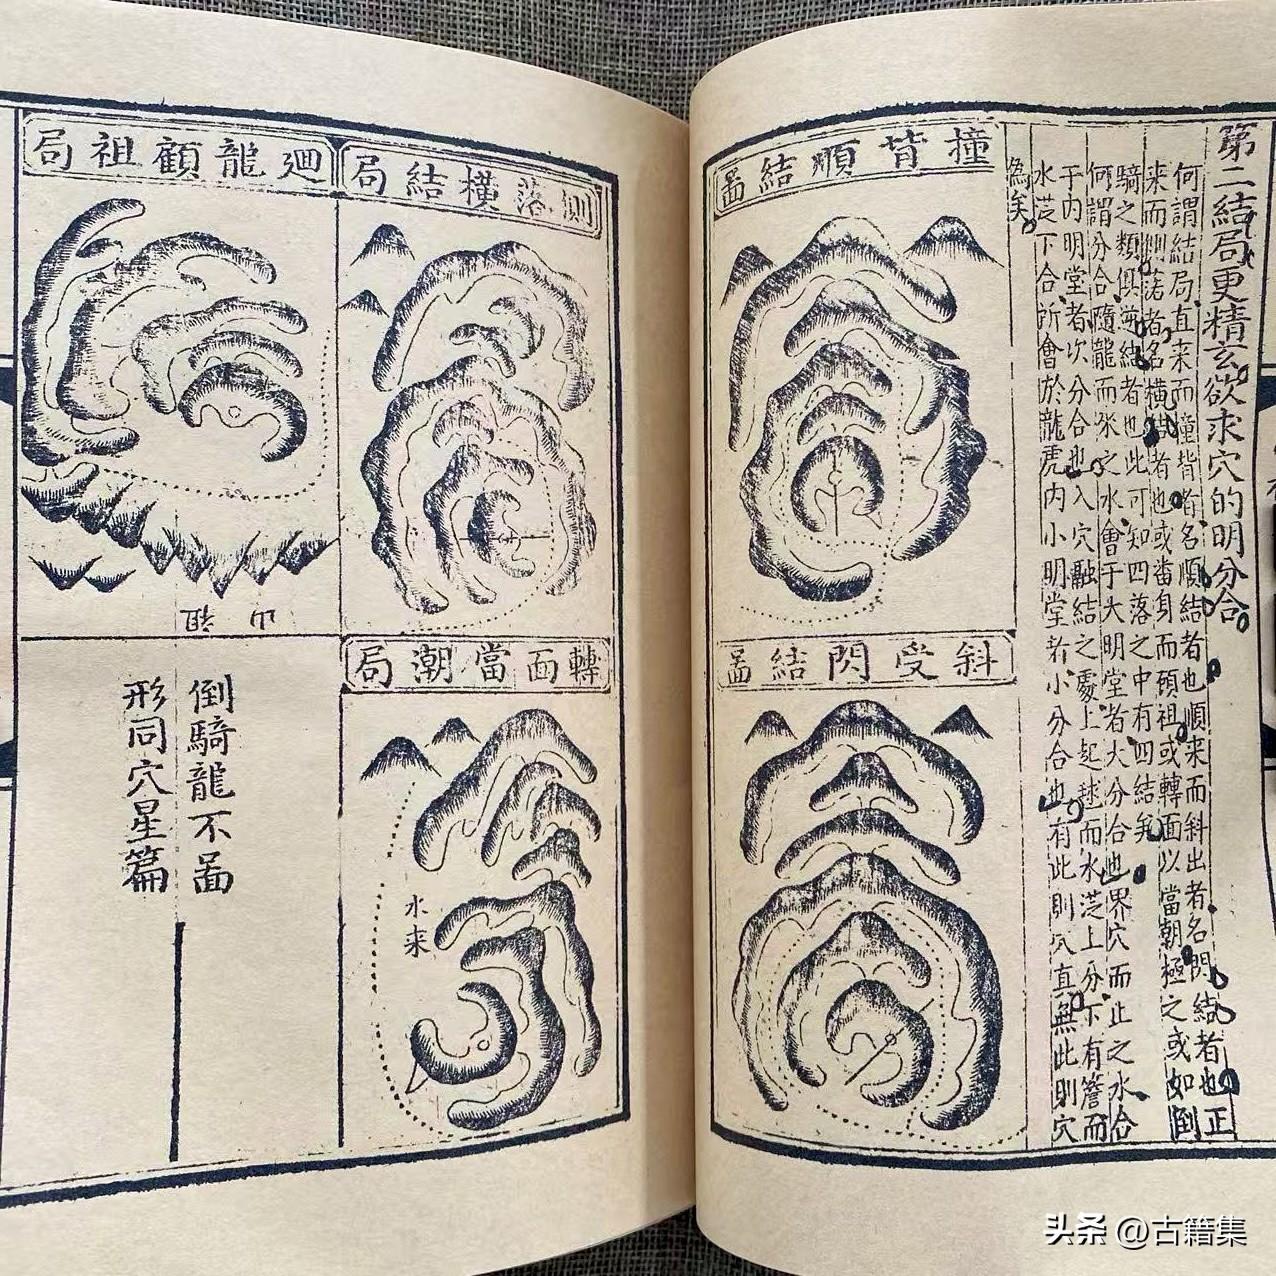 第二結局更精玄欲求穴的明分合
何謂結局直来而撞背者名順結者也順来而斜出者名閃結者也正
来而側落者名横結者也或畨身而頋祖或轉面以當朝極之或如倒
騎之類俱逆結者也此可知四落之中有四結矣
何謂分合隨龍而来之水會于大明堂者大分合也界穴而止之水合
于内明堂者次分合也入穴融結之處上起毬而水上分下有簷而
水下合所會於龍虎内小明堂者小分合也有此則穴真無此則穴
為矣
撞背順結啚
斜受閃結啚
側落横結局
轉面當潮局
水来
廻龍顧祖局
祖山
倒騎龍不啚
形同穴星篇
头条 @古籍集